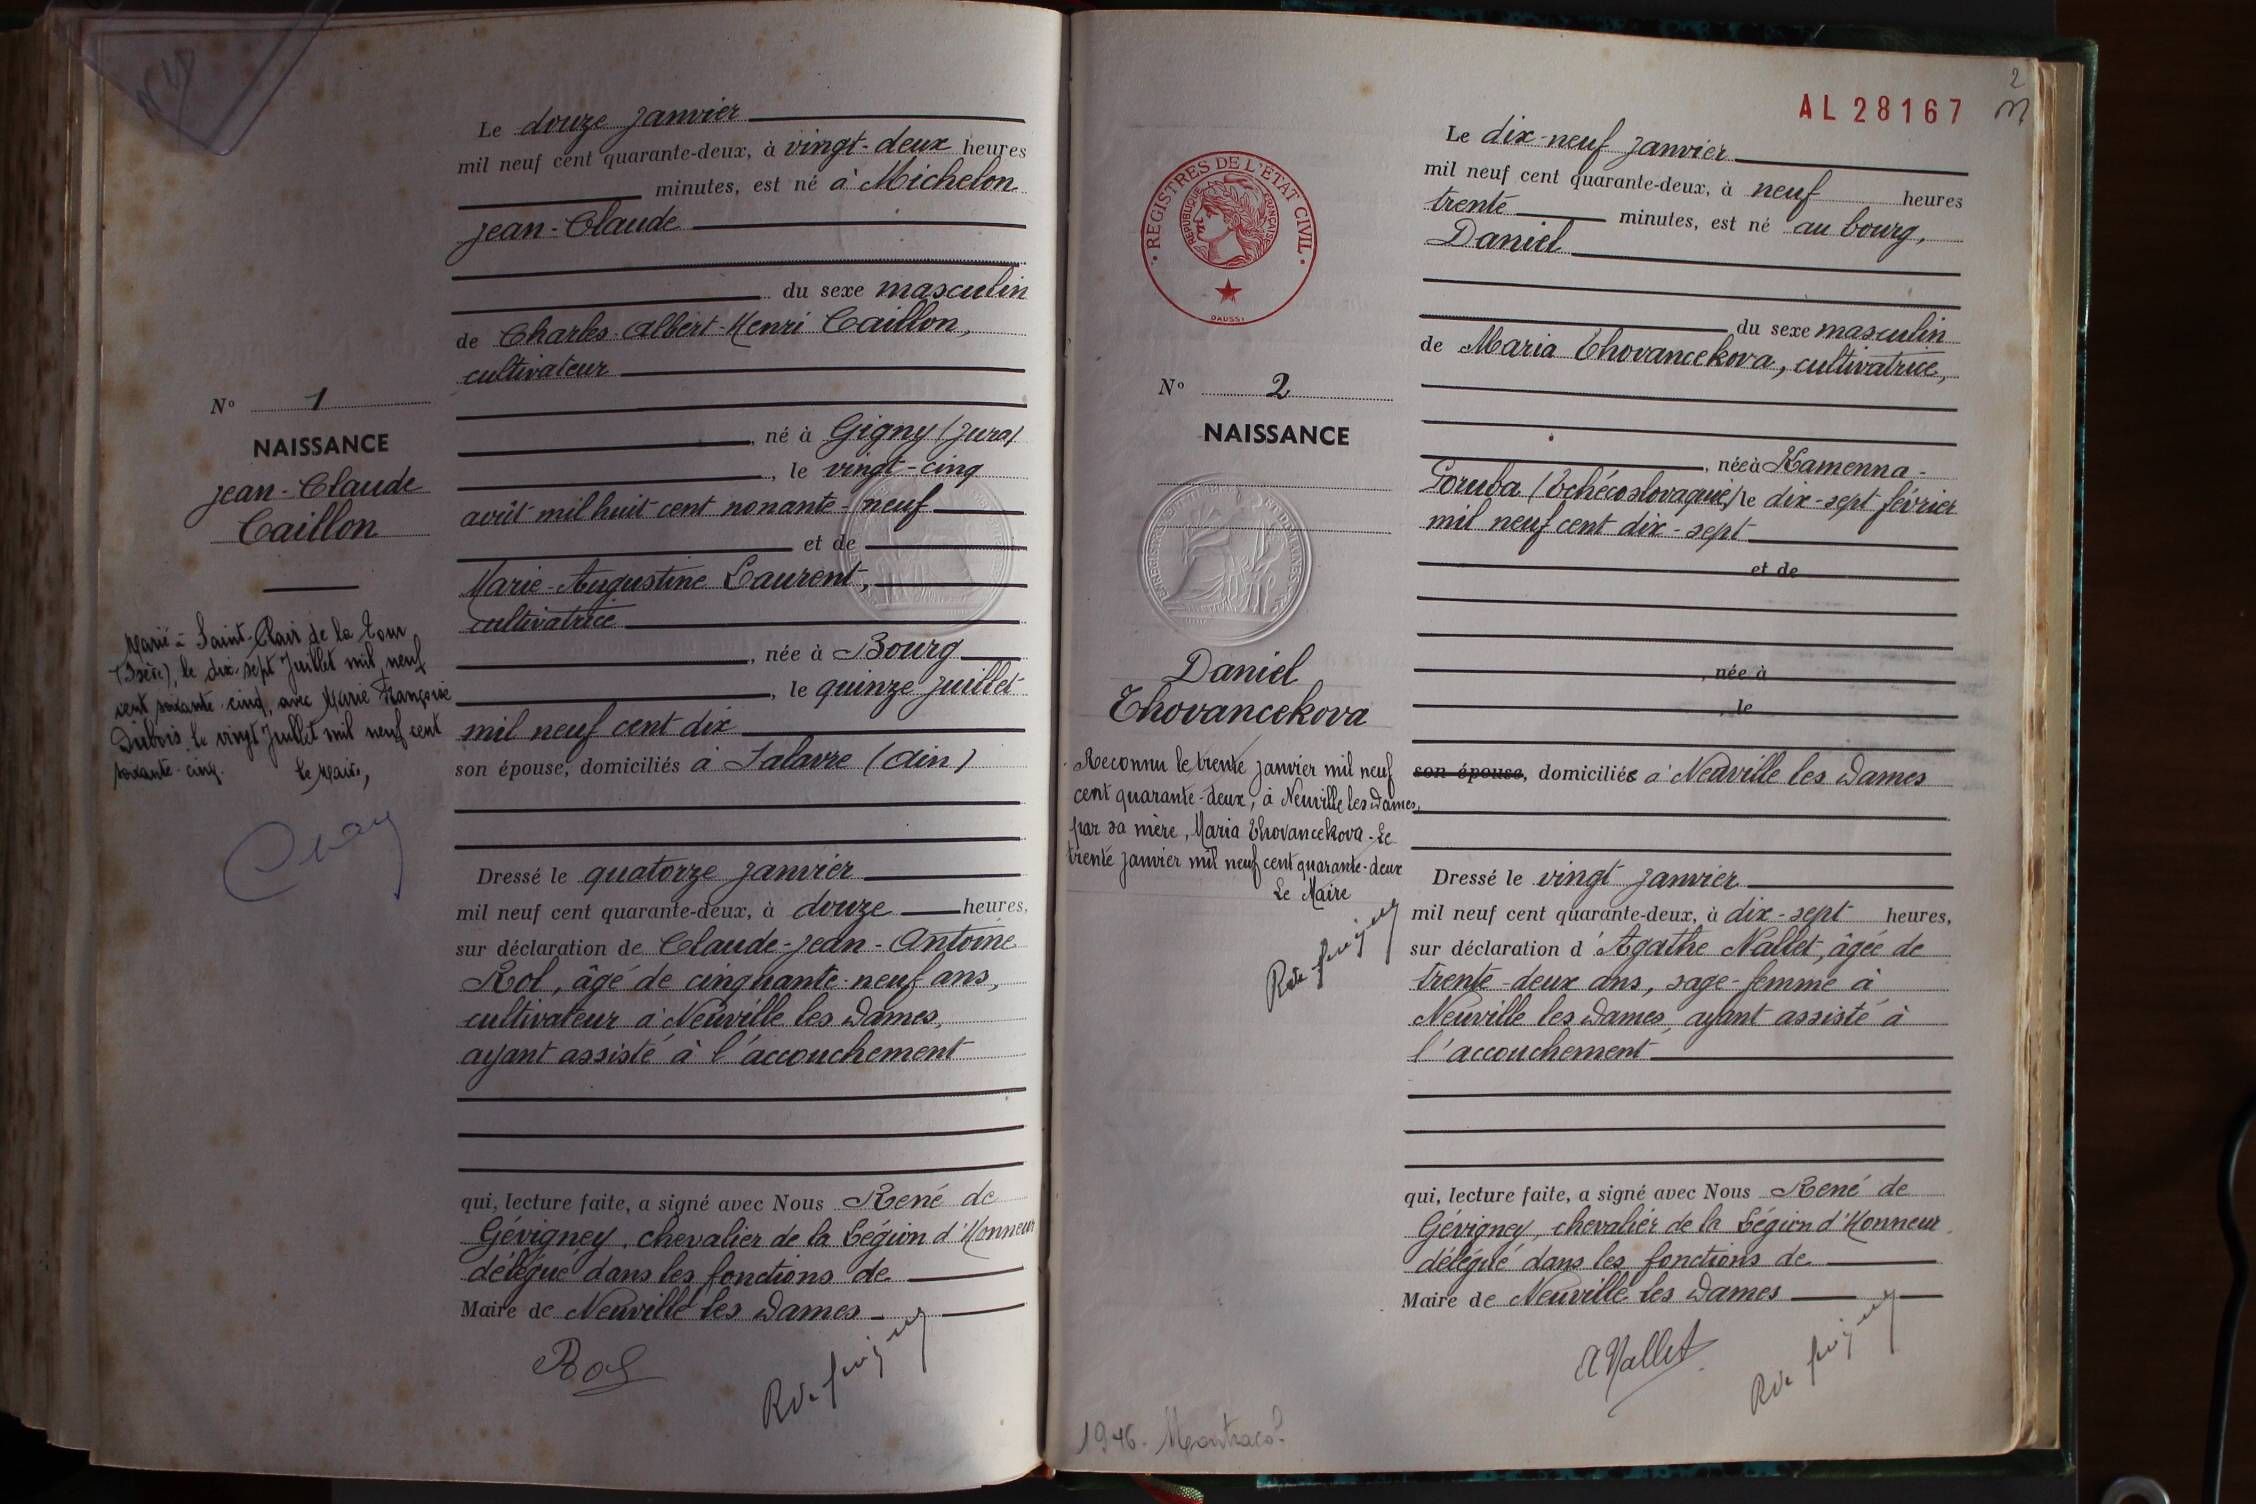 Le douze janvier
mil neuf cent quarante-deux, à vingt-deux heures
minutes, est né à Michelon
Jean-Claude
du sexe masculin
de Charles-Albert-Henri Caillon,
cultivateur
, né à Gigny (Jura)
, le vingt-cinq
août mil huit cent nonante-neuf
et de
Marie-Augustine Laurent,
cultivatrice
, née à Bourg
, le quinze juillet
mil neuf cent dix
son épouse, domiciliés à Salavre (Ain)
Dressé le quatorze janvier
mil neuf cent quarante-deux, à douze heures,
sur déclaration de Claude-Jean-Antoine
Rol, âgé de cinquante-neuf ans,
cultivateur à Neuville les Dames,
ayant assisté à l'accouchement
qui, lecture faite, a signé avec Nous René de
Gévigney, chevalier de la Légion d'Honneur
délégué dans les fonctions de
Maire de Neuville les Dames
Rol
N° 1
NAISSANCE
Jean-Claude
Caillon
Marié à Saint-Clair de la Tour
(Isère), le dix-sept Juillet mil neuf
cent soixante-cinq, avec Marie Françoise
Dubois. le vingt Juillet mil neuf cent
soixante-cinq.
le Maire,
2
AL 28167
REGISTRES DE L'ETAT CIVIL
REPUBLIQUE FRANÇAISE
DAUSSY
N° 2
NAISSANCE
Daniel
Thovancekova
Reconnu le trente janvier mil neuf
cent quarante-deux, à Neuville les Dames,
par sa mère, Maria Thovancekova - Le
trente janvier mil neuf cent quarante-deux
Le Maire
1946.
Le dix-neuf janvier
mil neuf cent quarante-deux, à neuf heures
trente minutes, est né au bourg,
Daniel
du sexe masculin
de Maria Thovancekova, cultivatrice,
, née à Kamenna-
Poruba (Tchécoslovaquie) le dix-sept février
mil neuf cent dix-sept
et de
, née à
, le
son épouse, domiciliée à Neuville les Dames
Dressé le vingt janvier
mil neuf cent quarante-deux, à dix-sept heures,
sur déclaration d'Agathe Nallet, âgée de
trente-deux ans, sage-femme à
Neuville les Dames, ayant assisté à
l'accouchement
qui, lecture faite, a signé avec Nous René de
Gévigney, chevalier de la Légion d'Honneur
délégué dans les fonctions de
Maire de Neuville les Dames
A Nallet